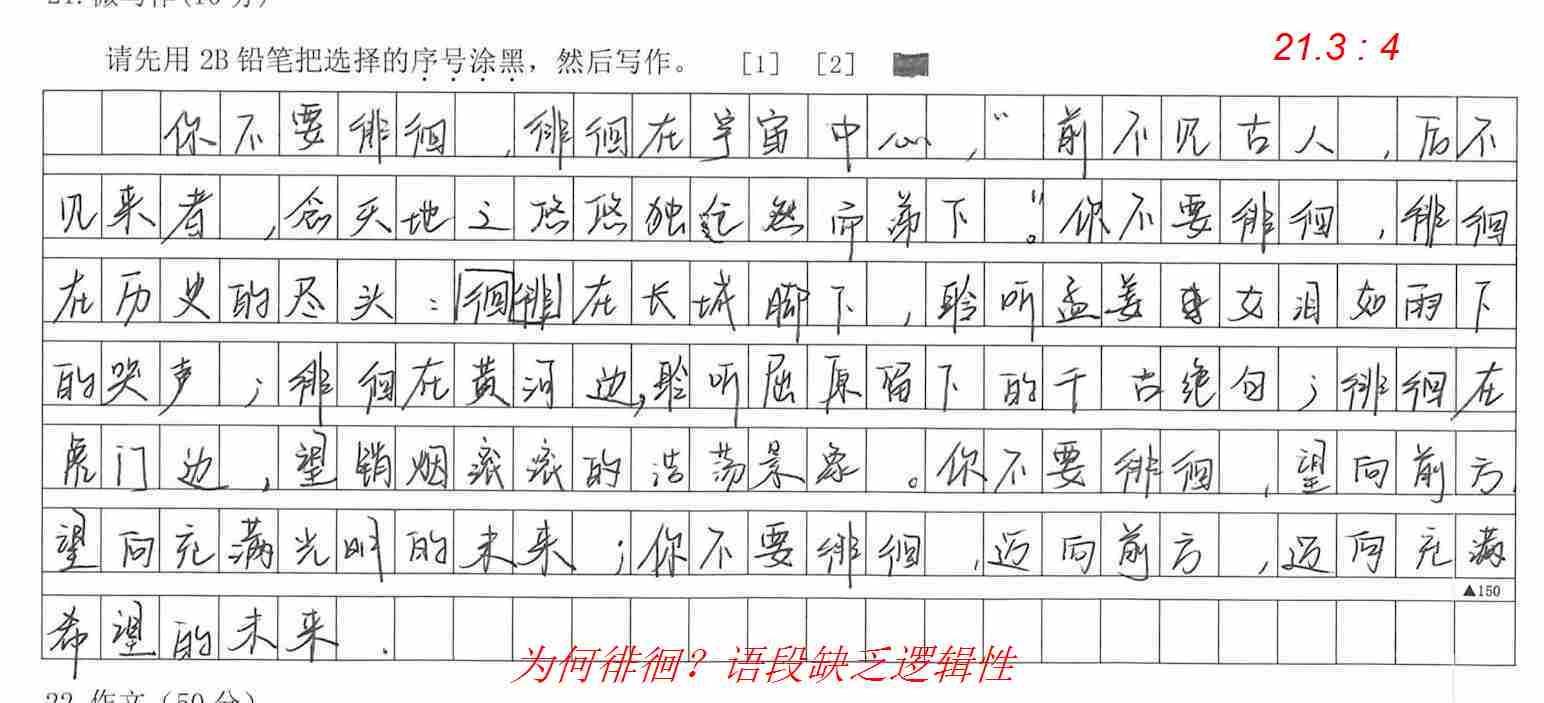 21.微写作(10分)
请先用 2B 铅笔把选择的序号涂黑，然后写作。 [1] [2]
21.3 : 4
你不要徘徊，徘徊在宇宙中心，“前不见古人，后不
见来者，念天地之悠悠独怆然而涕下。”你不要徘徊，徘徊
在历史的尽头：徊徘在长城脚下，聆听孟姜女泪如雨下
的哭声；徘徊在黄河边，聆听屈原留下的千古绝句；徘徊在
虎门边，望销烟滚滚的浩荡景象。你不要徘徊，望向前方，
望向充满光明的未来；你不要徘徊，迈向前方，迈向充满
▲150
希望的未来.
为何徘徊？语段缺乏逻辑性
22.作文(50分)